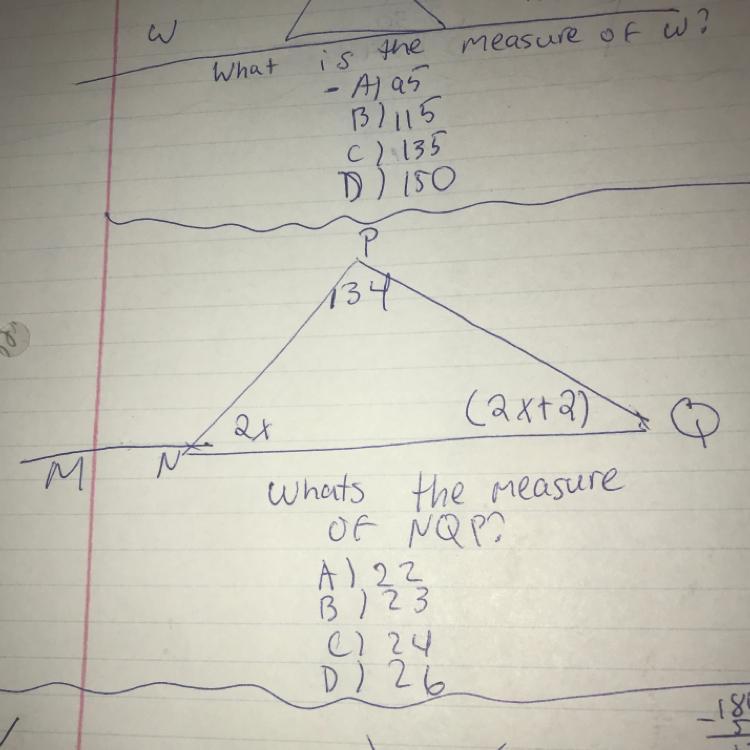 W
What is the measure of w?
- A) 95
B) 115
C) 135
D) 150
P
134
2x
(2x+2)
Q
M
N
Whats the measure
OF NQP?
A) 22
B) 23
C) 24
D) 26